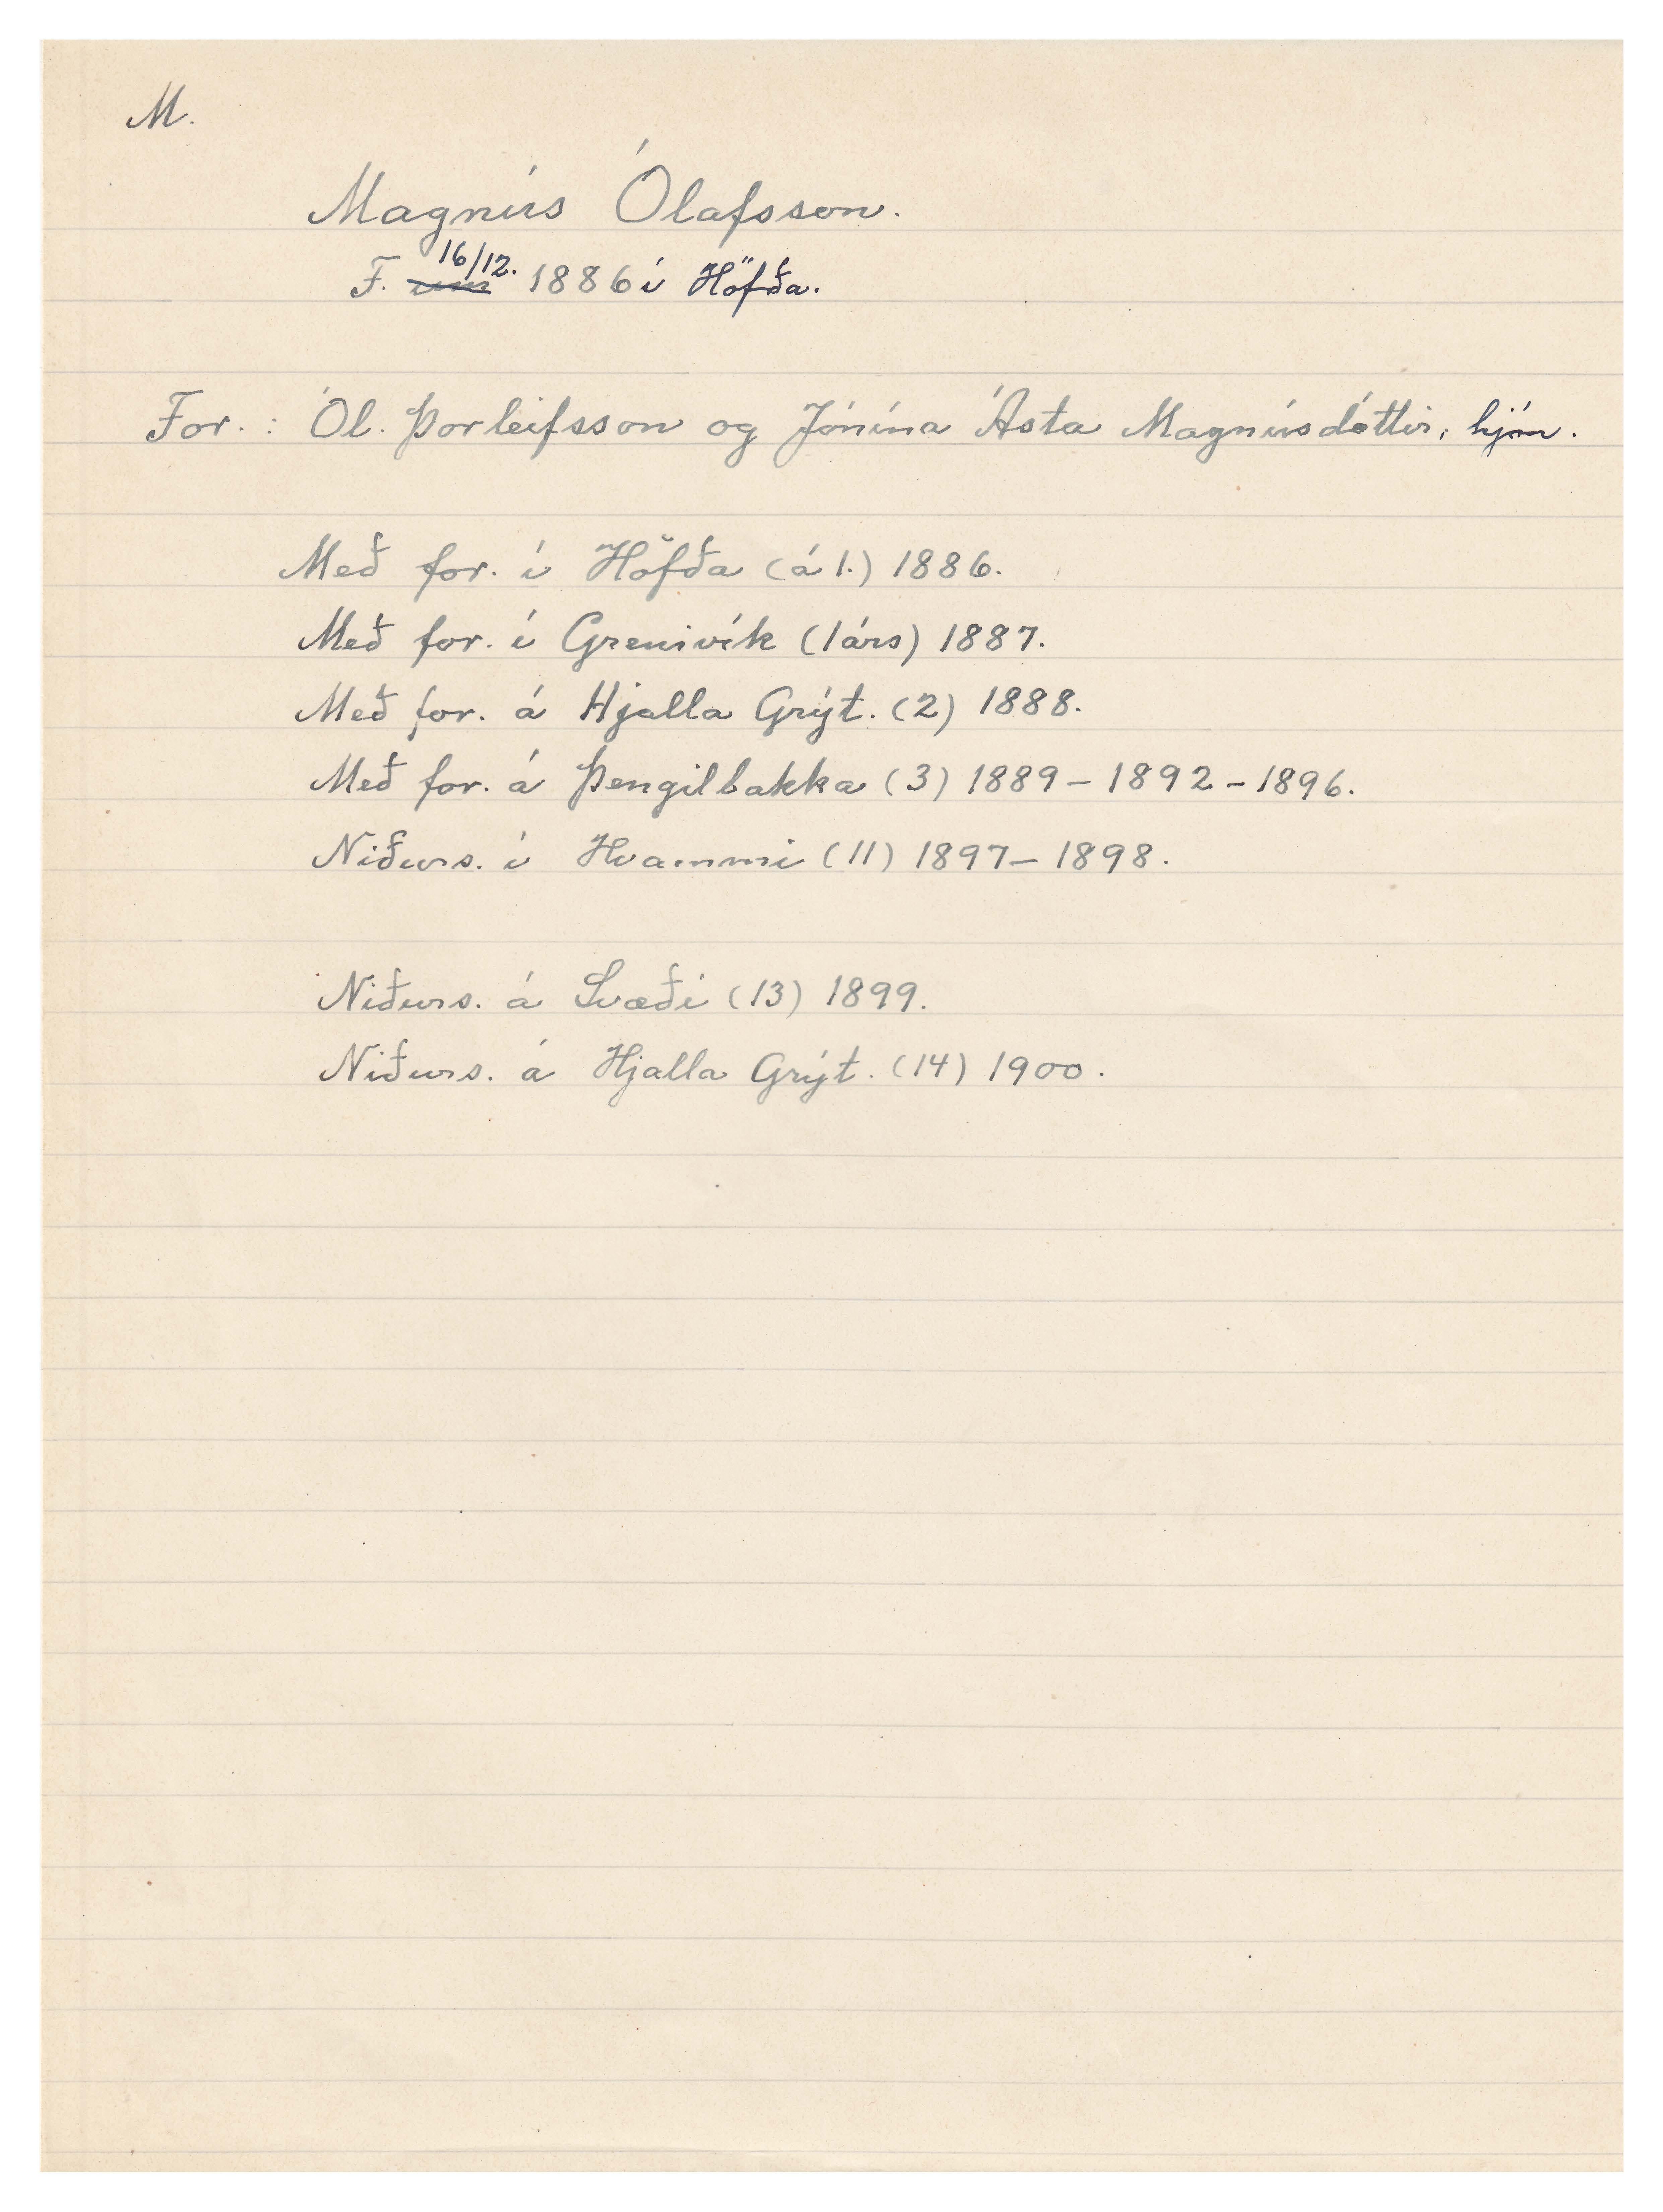 M.
Magnús Ólafsson.
F. um 16/12. 1886 í Höfða.
For.: Ól. Þorleifsson og Jónína Ásta Magnúsdóttir, hjón.
Með for. í Höfða (á 1.) 1886.
Með for. í Grenivík (1árs) 1887.
Með for. á Hjalla Grýt. (2) 1888.
Með for. á Þengilbakka (3) 1889 - 1892 - 1896.
Niðurs. í Hvammi (11) 1897 - 1898.
Niðurs. á Svæði (13) 1899.
Niðurs. á Hjalla Grýt. (14) 1900.